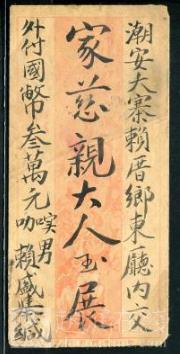 潮安大寨賴厝鄉東廳內交
家慈親大人玉展
外付國幣叁萬元 叻 男 賴盛集緘